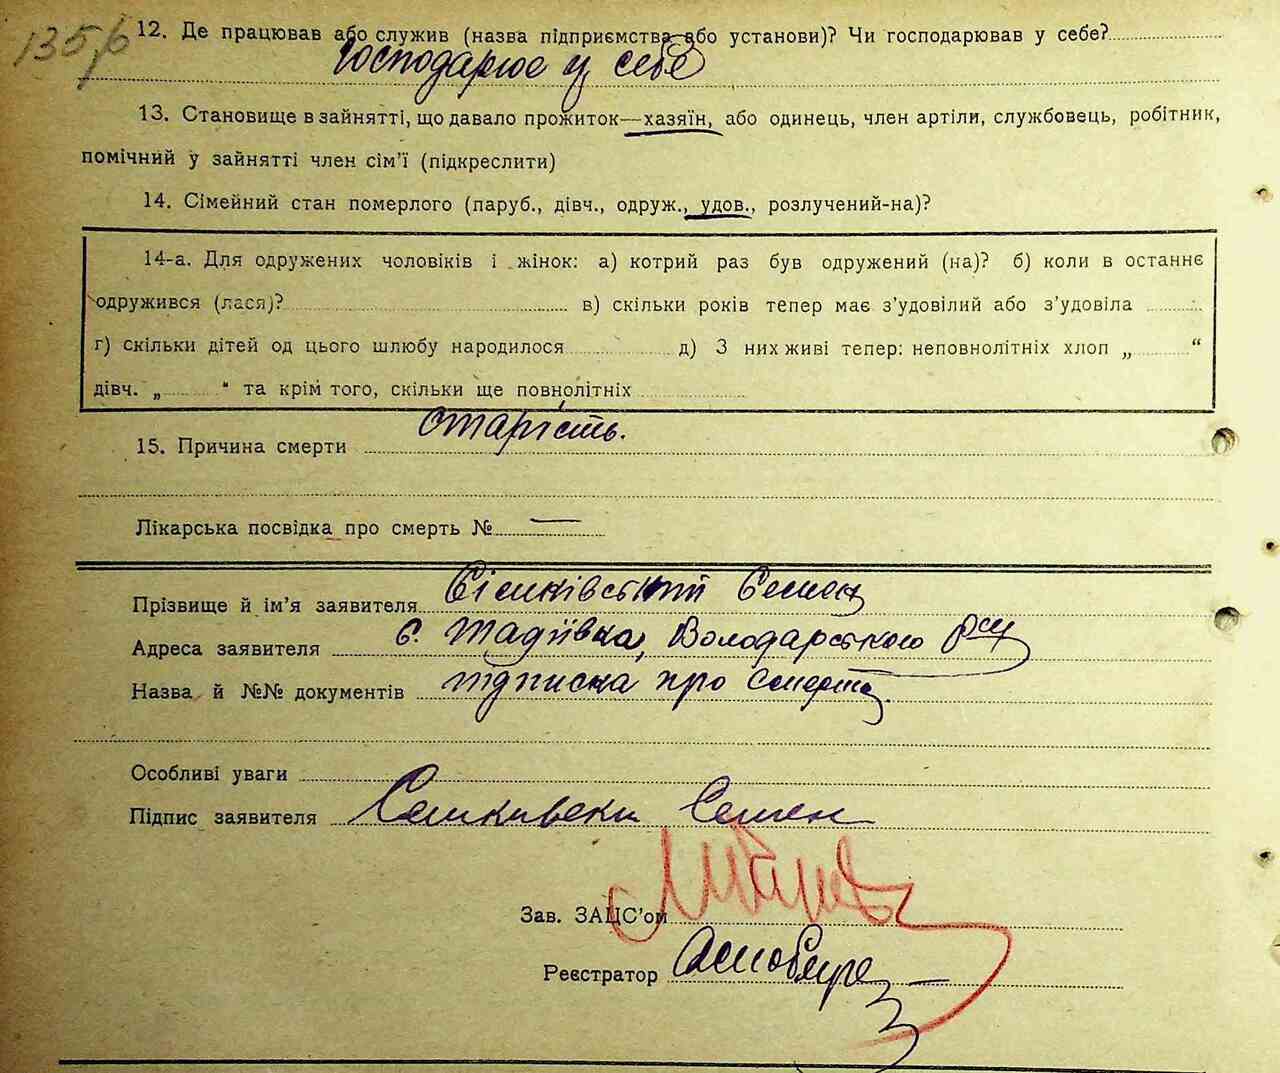 135/б
12. Де працював або служив (назва підприємства або установи)? Чи господарював у себе?
Господарює у себе
13. Становище в зайнятті, що давало прожиток—хазяїн, або одинець, член артіли, службовець, робітник,
помічний у зайнятті член сім'ї (підкреслити)
14. Сімейний стан померлого (паруб., дівч., одруж., удов., розлучений-на)?
14-а. Для одружених чоловіків і жінок: а) котрий раз був одружений (на)? б) коли в останнє
одружився (лася)? в) скільки років тепер має з'удовілий або з'удовіла
г) скільки дітей од цього шлюбу народилося д) З них живі тепер: неповнолітніх хлоп „ “
дівч. „ “ та крім того, скільки ще повнолітніх
15. Причина смерти старість.
Лікарська посвідка про смерть № —
Прізвище й ім'я заявителя Сішківський Семен
Адреса заявителя с. Тадіївка, Володарського р-ну
Назва й №№ документів підписка про смерть
Особливі уваги
Підпис заявителя Сешкивски Семен
Зав. ЗАЦС'ом
Реєстратор